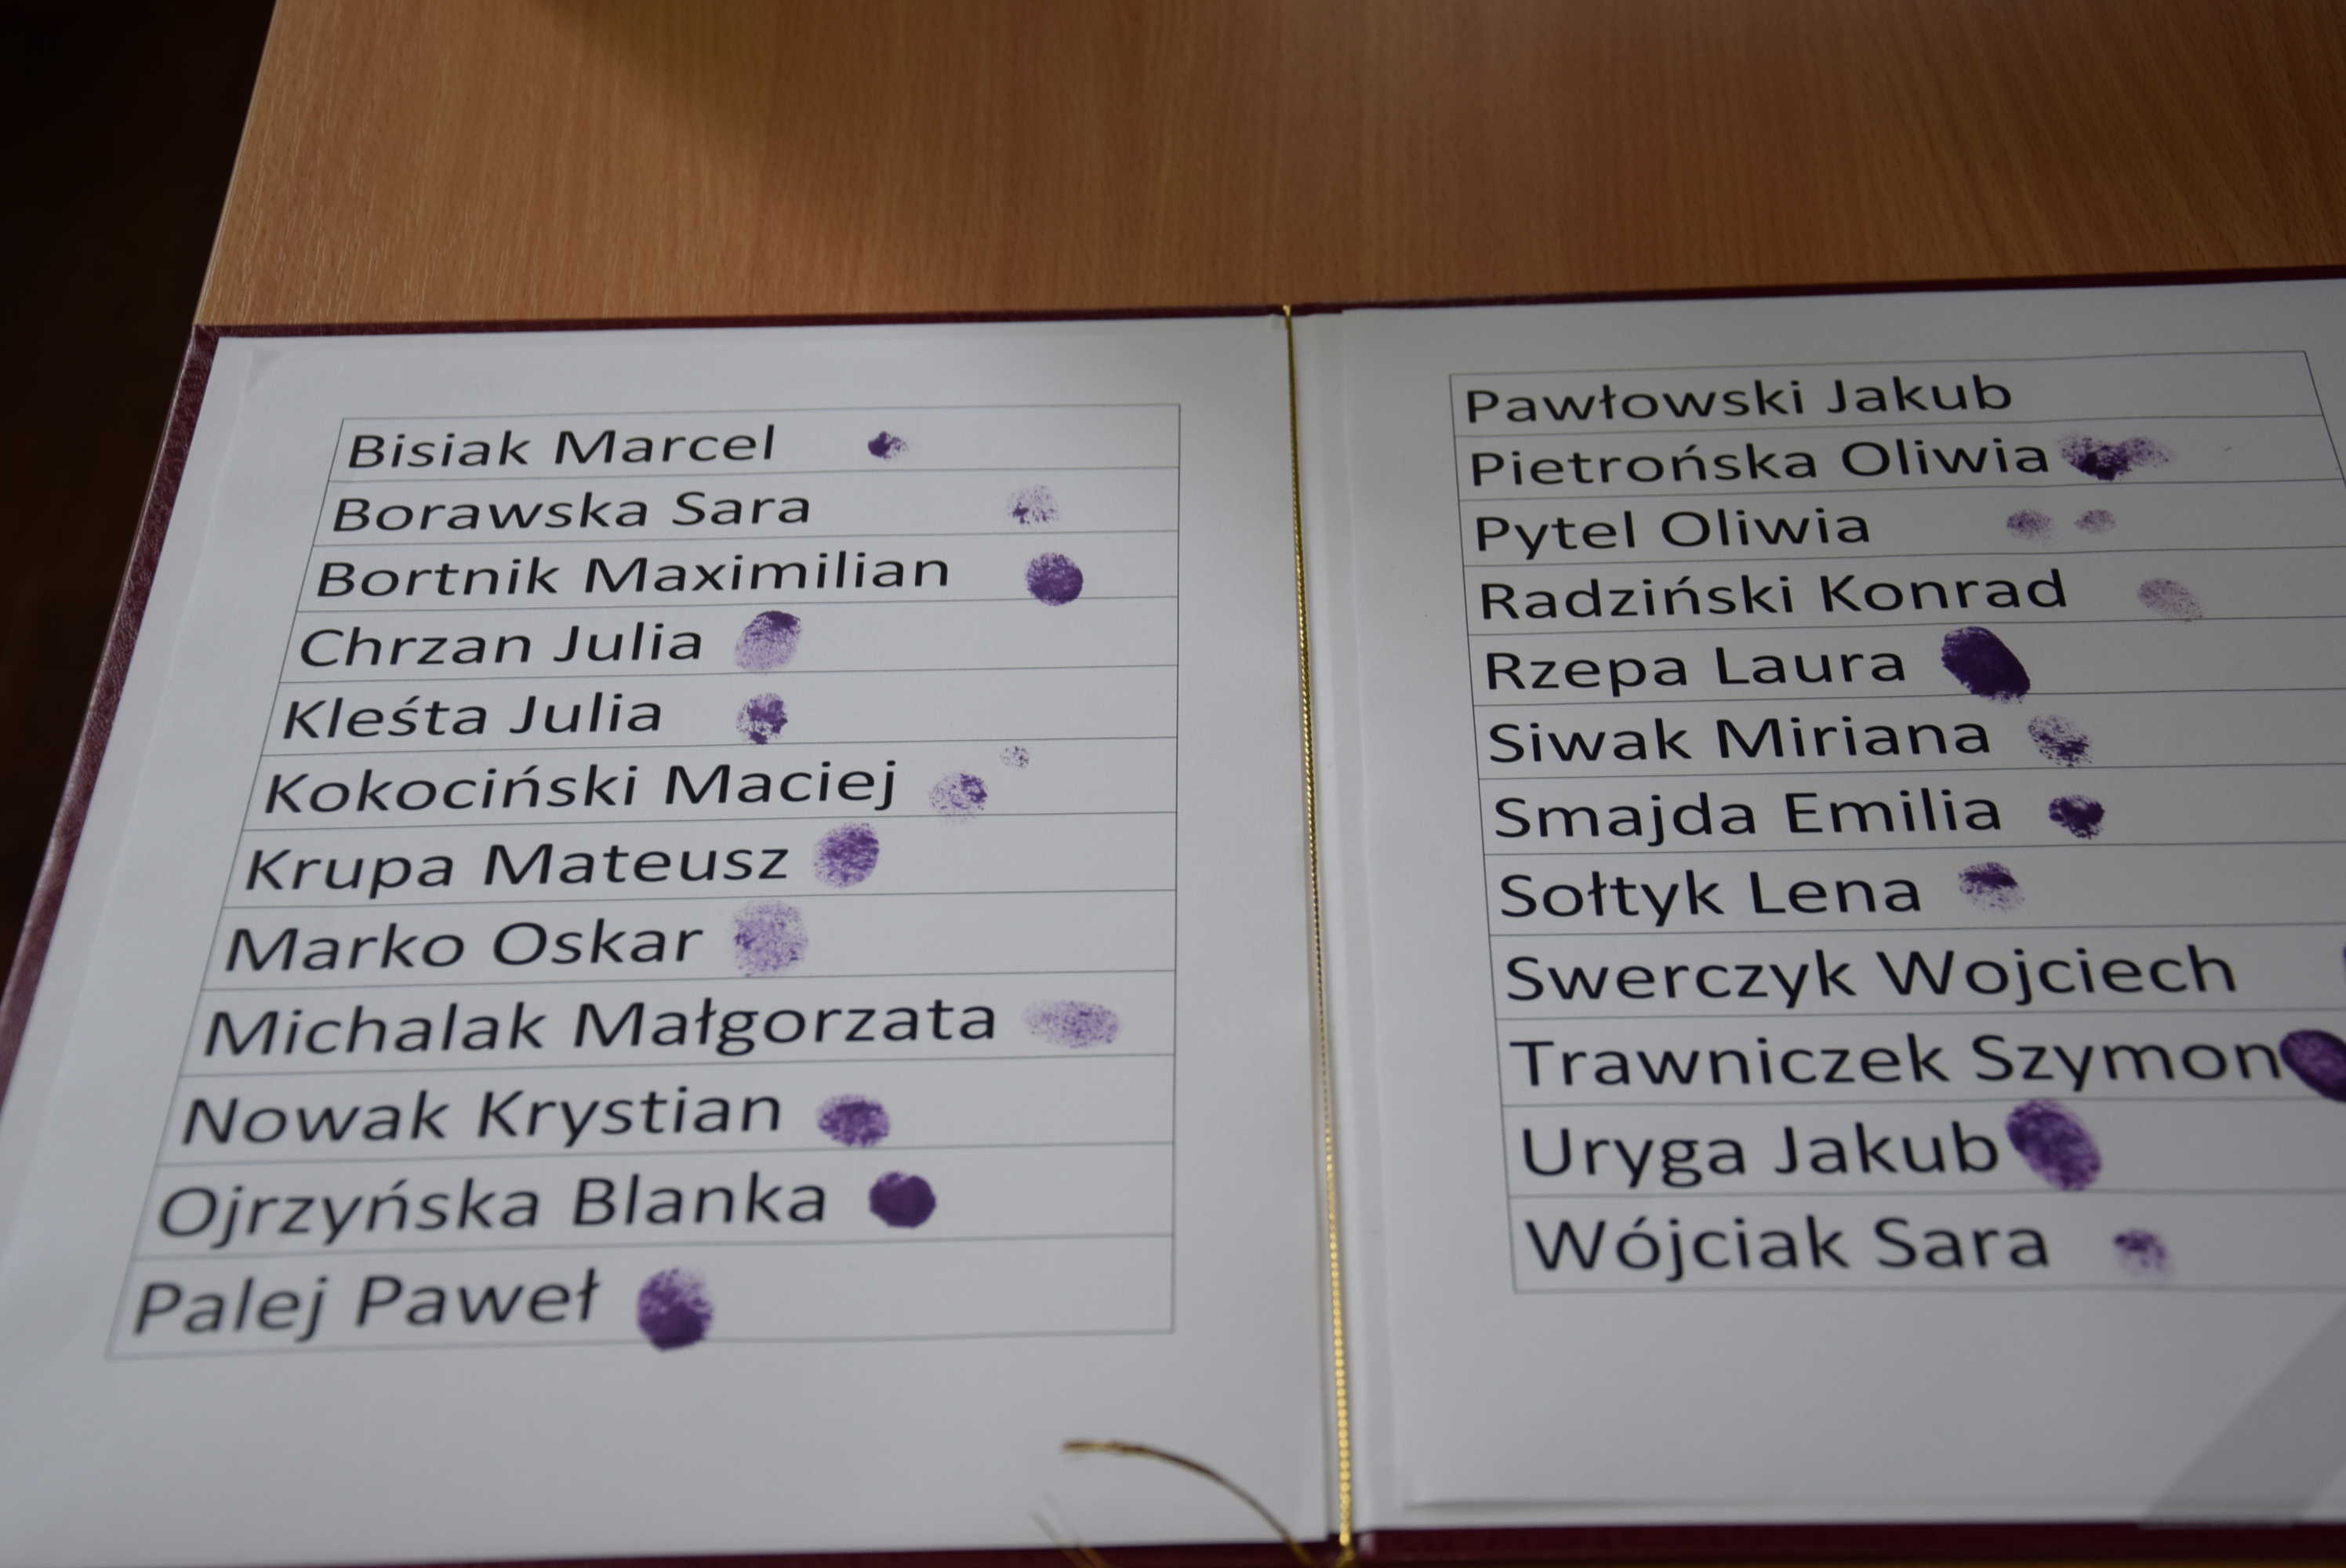 Bisiak Marcel
Borawska Sara
Bortnik Maximilian
Chrzan Julia
Kleśta Julia
Kokociński Maciej
Krupa Mateusz
Marko Oskar
Michalak Małgorzata
Nowak Krystian
Ojrzyńska Blanka
Palej Paweł
Pawłowski Jakub
Pietrońska Oliwia
Pytel Oliwia
Radziński Konrad
Rzepa Laura
Siwak Miriana
Smajda Emilia
Sołtyk Lena
Swerczyk Wojciech
Trawniczek Szymon
Uryga Jakub
Wójciak Sara